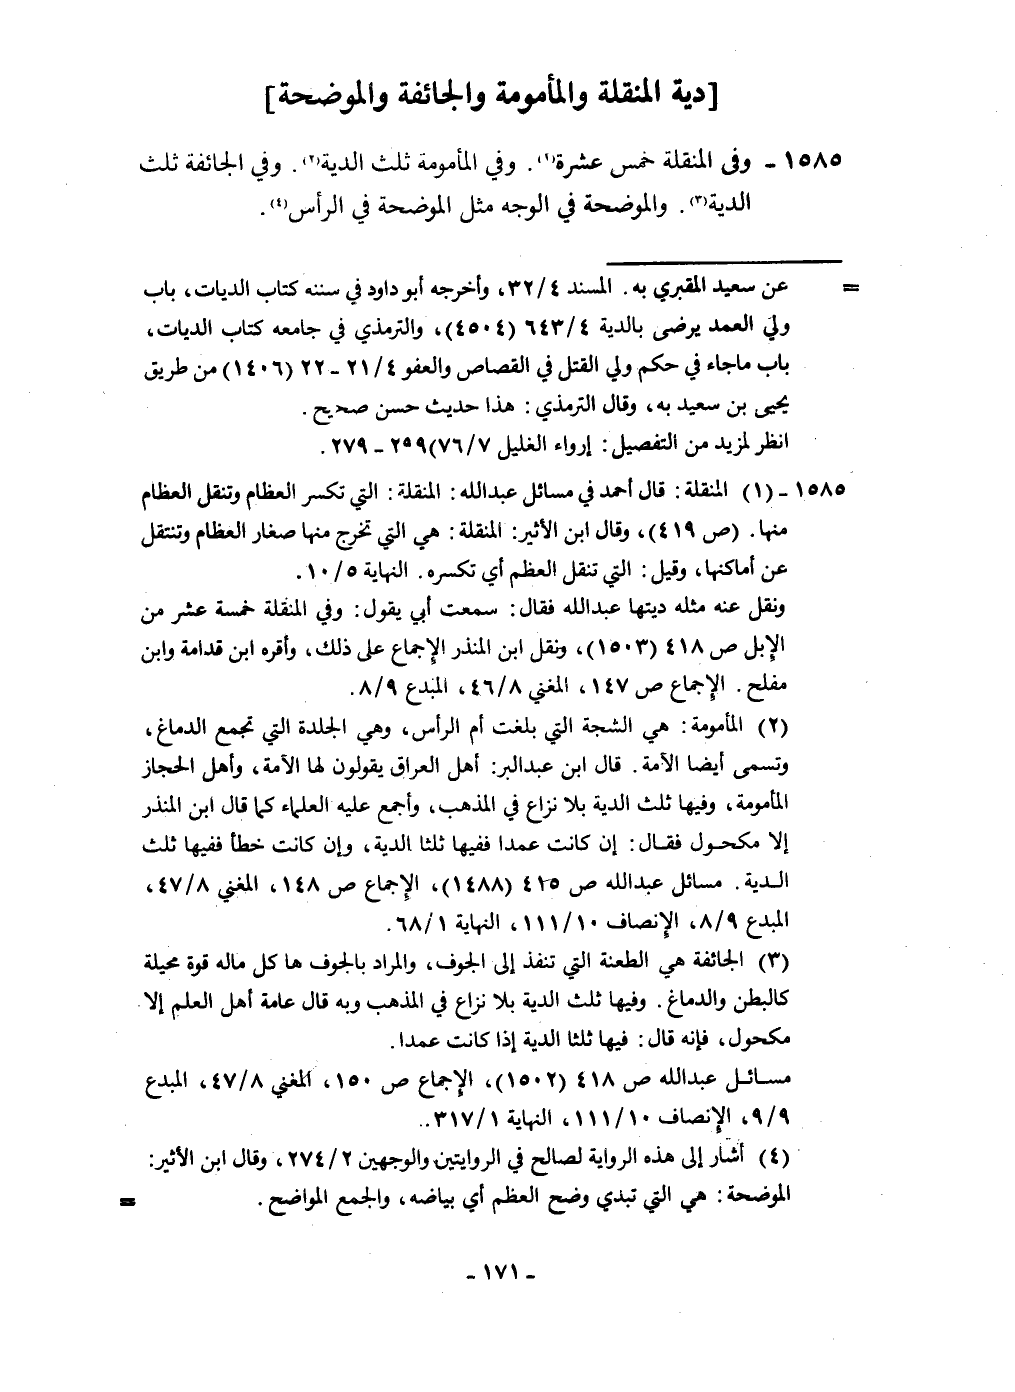 [دية المنقلة والمأمومة والجائفة والموضحة]
١٥٨٥ - وفى المنقلة خمس عشرة(١). وفي المأمومة ثلث الدية(٢). وفي الجائفة ثلث
الدية(٣). والموضحة في الوجه مثل الموضحة في الرأس(٤).
= عن سعيد المقبري به. المسند ٣٢/٤، وأخرجه أبو داود في سننه كتاب الديات، باب
ولي العمد يرضى بالدية ٦٤٣/٤ (٤٥٠٤)، والترمذي في جامعه كتاب الديات،
باب ماجاء في حكم ولي القتل في القصاص والعفو ٢١/٤ - ٢٢ (١٤٠٦) من طريق
يحيى بن سعيد به، وقال الترمذي: هذا حديث حسن صحيح.
انظر لمزيد من التفصيل: إرواء الغليل ٧٦/٧)٢٥٩ - ٢٧٩.
١٥٨٥ - (١) المنقلة: قال أحمد في مسائل عبدالله: المنقلة: التي تكسر العظام وتنقل العظام
منها. (ص ٤١٩)، وقال ابن الأثير: المنقلة: هي التي تخرج منها صغار العظام وتنتقل
عن أماكنها، وقيل: التي تنقل العظم أي تكسره. النهاية ١٠/٥.
ونقل عنه مثله ديتها عبدالله فقال: سمعت أبي يقول: وفي المنقلة خمسة عشر من
الإبل ص ٤١٨ (١٥٠٣)، ونقل ابن المنذر الإجماع على ذلك، وأقره ابن قدامة وابن
مفلح. الإجماع ص ١٤٧، المغني ٤٦/٨، المبدع ٨/٩.
(٢) المأمومة: هي الشجة التي بلغت أم الرأس، وهي الجلدة التي تجمع الدماغ،
وتسمى أيضا الآمة. قال ابن عبدالبر: أهل العراق يقولون لها الآمة، وأهل الحجاز
المأمومة، وفيها ثلث الدية بلا نزاع في المذهب، وأجمع عليه العلماء كما قال ابن المنذر
إلا مكحول فقال: إن كانت عمدا ففيها ثلثا الدية، وإن كانت خطأ ففيها ثلث
الدية. مسائل عبدالله ص ٤١٥ (١٤٨٨)، الإجماع ص ١٤٨، المغني ٤٧/٨،
المبدع ٨/٩، الإنصاف ١١١/١٠، النهاية ٦٨/١.
(٣) الجائفة هي الطعنة التي تنفذ إلى الجوف، والمراد بالجوف ها كل ماله قوة محيلة
كالبطن والدماغ. وفيها ثلث الدية بلا نزاع في المذهب وبه قال عامة أهل العلم إلا
مكحول، فإنه قال: فيها ثلثا الدية إذا كانت عمدا.
مسائل عبدالله ص ٤١٨ (١٥٠٢)، الإجماع ص ١٥٠، المغني ٤٧/٨، المبدع
٩/٩، الإنصاف ١١١/١٠، النهاية ٣١٧/١..
(٤) أشار إلى هذه الرواية لصالح في الروايتين والوجهين ٢٧٤/٢، وقال ابن الأثير:
الموضحة: هي التي تبدي وضح العظم أي بياضه، والجمع المواضح. =
- ١٧١ -